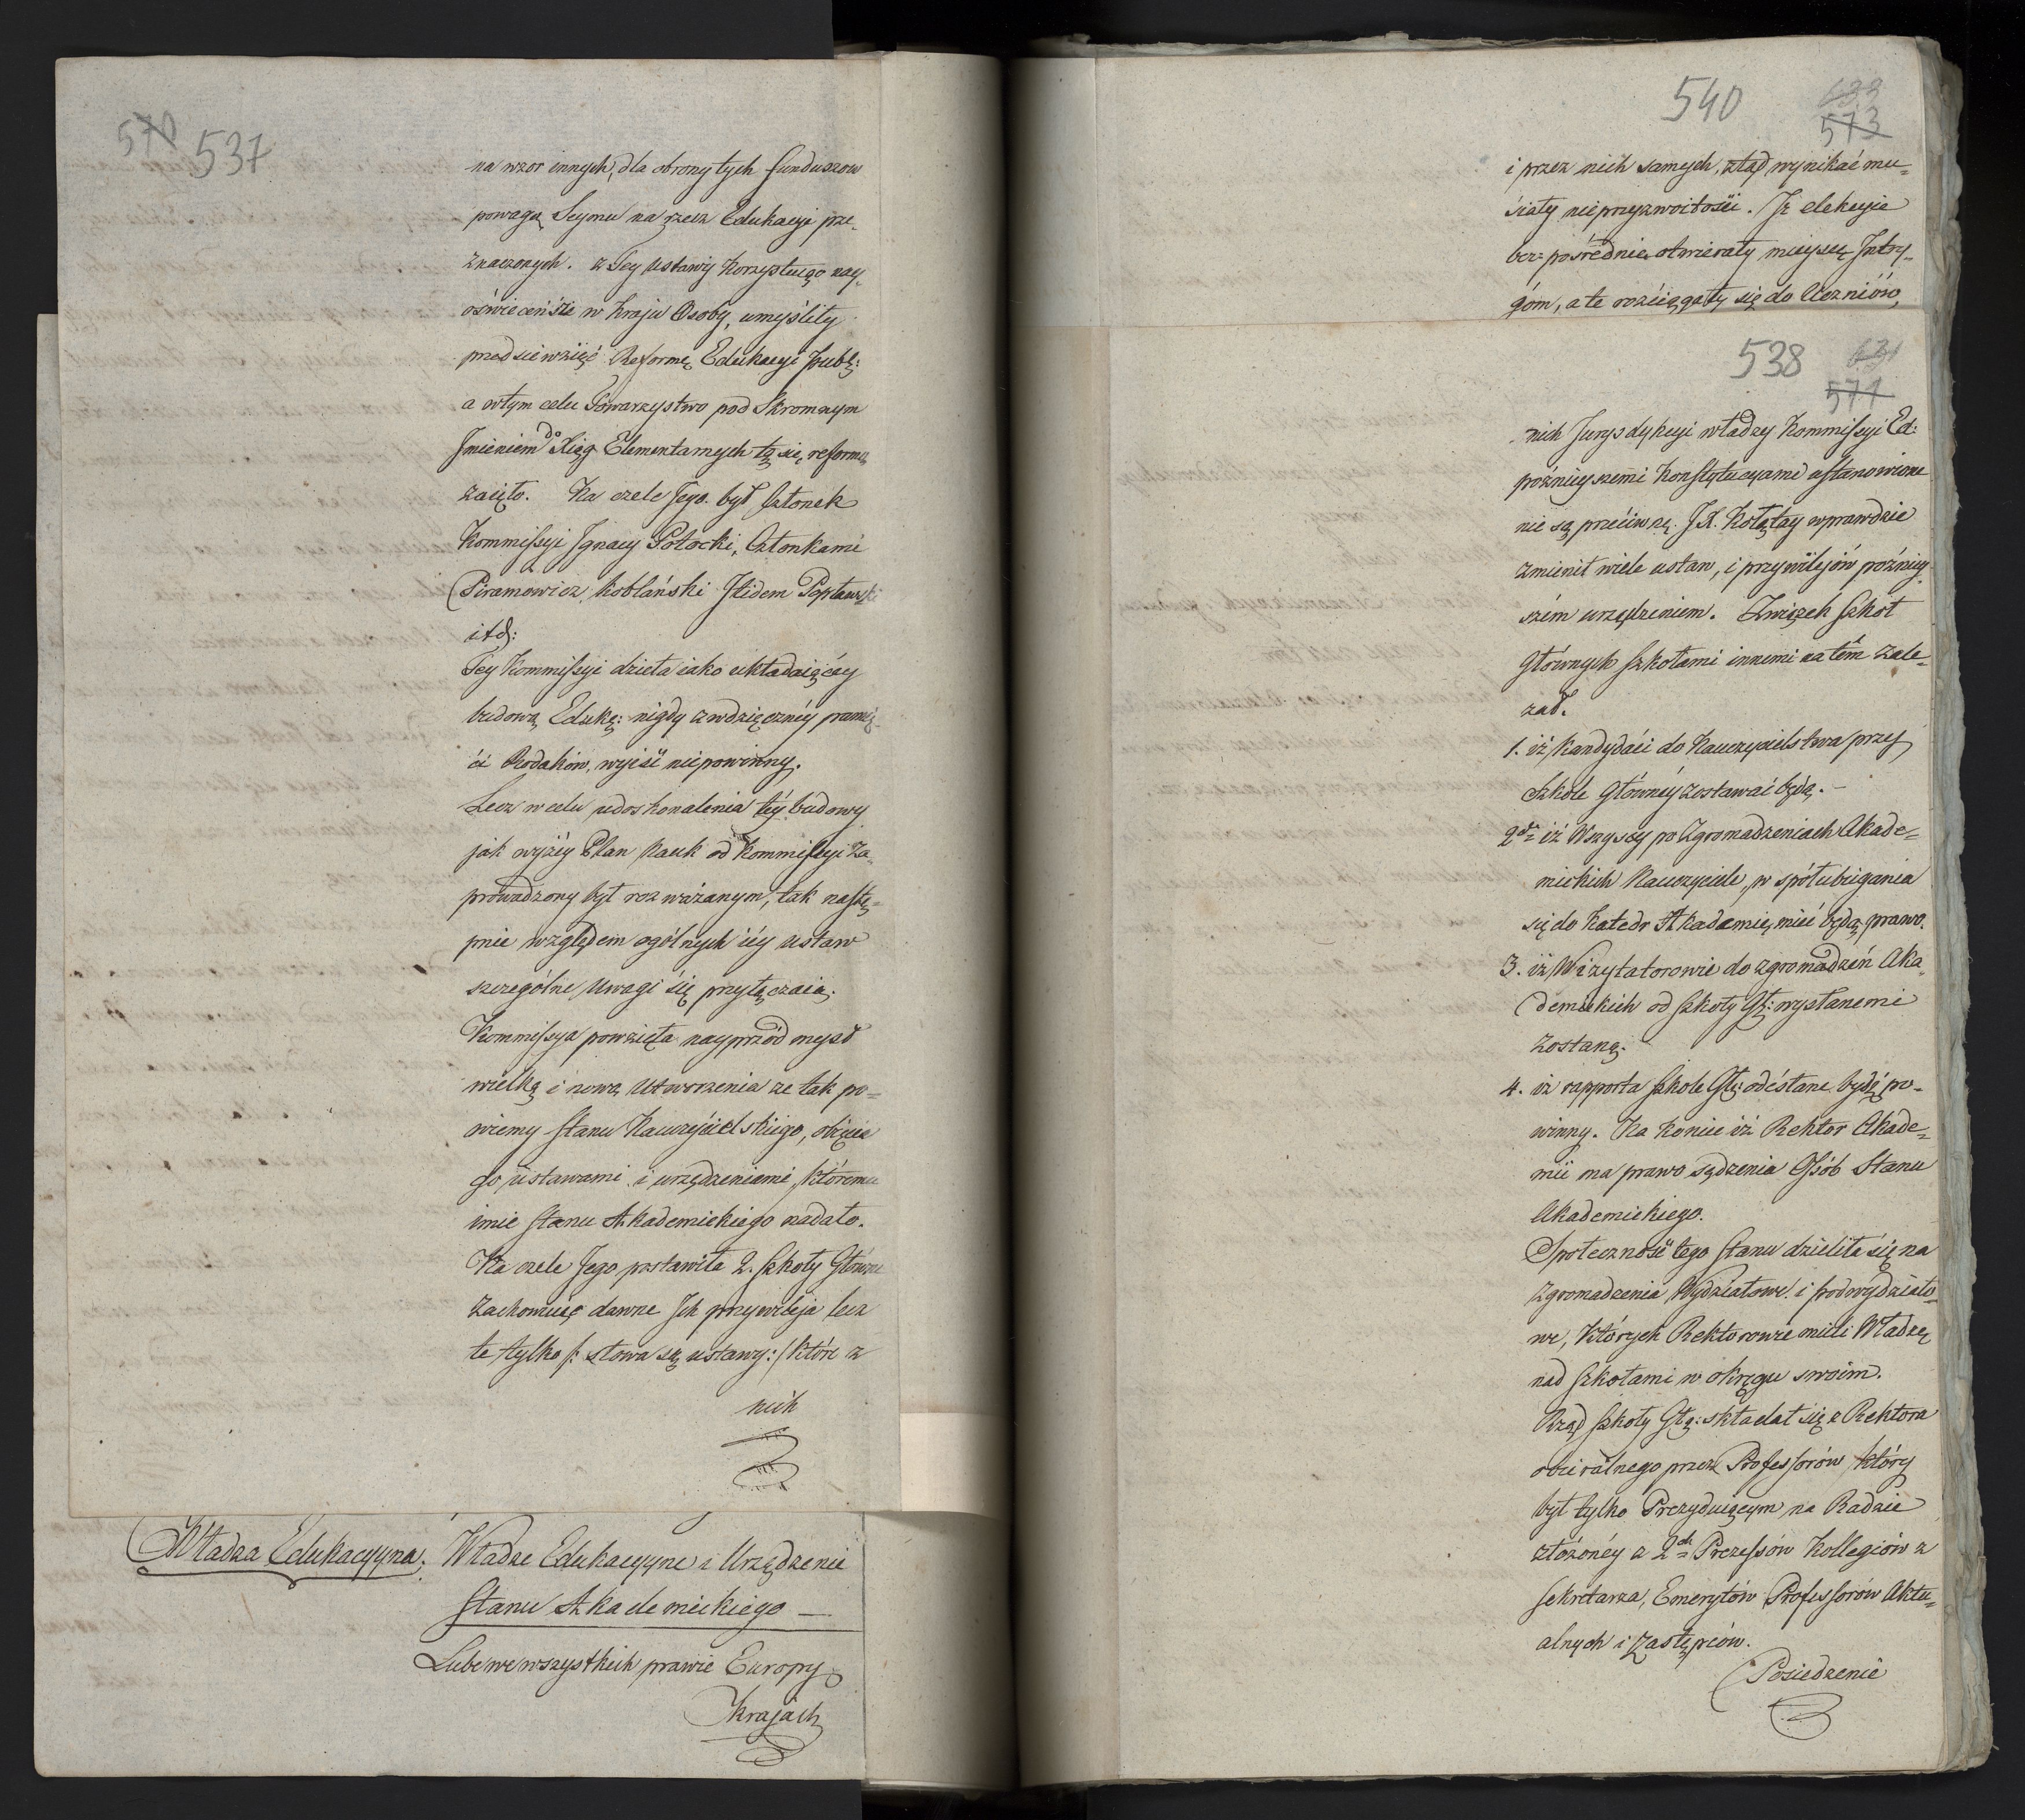 570 537
na wzor innych, dla obrony tych funduszow
powagą Seymu na rzecz Edukacyi prze-
znaczonych. z Tey Ustawy Korzystuiąc nay-
oświeceńsze w Kraju Osoby, umyśliły
przedsiewziąć Reformę Edukacyi Publ:
a wtym celu Towarzystwo pod Skromnym
Jmieniem do Xiąg Elementarnych tą się reformą
zaięło. Na czele Jego był Członek
Kommissyi Jgnacy Potocki, Członkami
Piramowicz Koblański Jtidem Popławski
itd:
Tey Kommissyi dzieła iako układaiącéy
budowę Eduka: nigdy z wdzięcznéy pamię-
ći Rodaków, wyiść niepowinny.
Lecz w celu udoskonalenia téy budowy
jak wyżéy Plan Nauk od Kommissyi za-
prowadzony był rozważanym, tak nastę-
pnie względem ogólnych iéy ustaw
szczególne Uwagi się przyłączaią.
Kommissya powzięła nayprzód mysl
wielką i nową Utworzenia ze tak po-
wiemy Stanu Nauczycielskiego, obięcia
go ustawami i urządzeniami, któremu
imie Stanu Akademickiego nadało.
Na czele Jego postawiła 2. Szkoły Główne
Zachowuiąc dawne Jch przywileja lecz
te tylko /: słowa są ustawy:/ które z
nich
Władza Edukacyyna. Władze Edukacyyne i Urządzenie
Stanu Akademickiego —
Lubo we wszystkich prawie Europy
Krajach
540 633
573
i przez nich samych, ztąd wynikać mu-
siały nieprzyzwoitości. Jż elekcyie
bez pośrednie otwierały mieysce Jntry-
góm, a te rozciągały się do Uczniów,
538 631
571
nich Jurysdykcyi władzy Kommissyi Ed:
późnieyszemi Konstytucyami ustanowione
nie są przeciwne. JX. Kołłątay wprawdzie
zmienił wiele ustaw, i przywilejów późniey-
szém urządzeniem. Związek Szkół
Głównych Szkołami innemi na tém zale-
żał.
1. iż Kandydaći do Nauczycielstwa przy
Szkole Główney zostawać będą. -
2do iż Wszyscy po Zgromadzeniach Akade-
mickich Nauczyciele, w spółubiegania
się do Katedr Akademii, mieć będą prawo.
3. iż Wizytatorowie do zgromadzeń Aka-
demickich od Szkoły Gł: wysłanemi
zostaną.
4. iż rapporta Szkole Głł: odesłane bydź po-
winny. Na Koniec iż Rektor Akade-
mii ma prawo sądzenia Osób Stanu
Akademickiego.
Społeczność tego Stanu dzieliła się na
Zgromadzenia Wydziałowe i podwydziało-
we, których Rektorowie mieli Władzę
nad Szkołami w okręgu swoim.
Rząd Szkoły Głł: składał się z Rektora
obieralnego przez Professorów, który
był tylko Prezyduiącym na Radzie
złożonéy z 2ch Prezessów Kollegiów z
Sekretarza, Emerytów Professorów Aktu-
alnych i Zastępców.
Posiedzenie